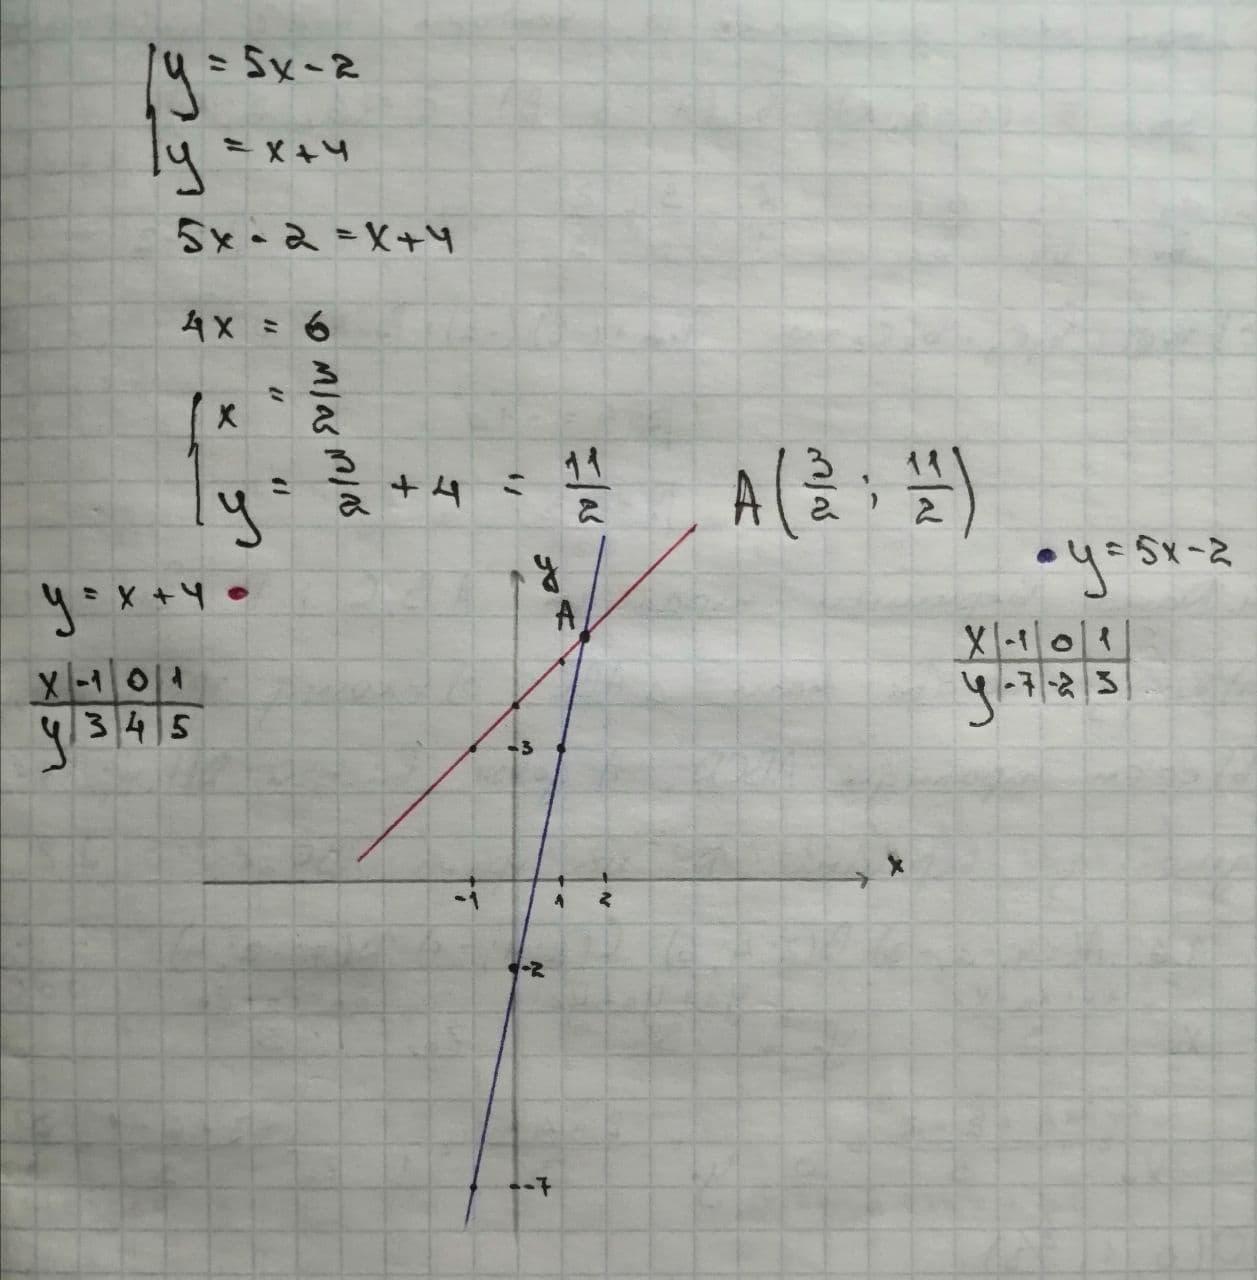 y = 5x - 2
y = x + 4
5x - 2 = x + 4
4x = 6
x = 3/2
y = 3/2 + 4 = 11/2 A(3/2 ; 11/2)
y = x + 4
x -1 0 1
y 3 4 5
y = 5x - 2
x -1 0 1
y -7 -2 3
y
A
-3
x
-1 1 2
-2
-7